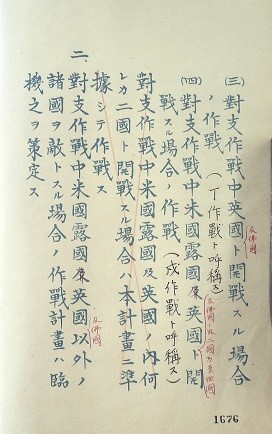 (三)對支作戰中英國ト開戰スル場合
及佛國
ノ作戰(丁作戰ト呼稱ス)
(四)對支作戰中米國露國英國ト開
及佛國
戰スル場合ノ作戰(戊作戰ト呼稱ス)
對支作戰中米國露國及英國ノ內何
レカ二國ト開戰スル場合ハ本計畫ニ準
據シテ作戰ス
二、對支作戰中米國露國英國以外ノ
及佛國
諸國ヲ敵トスル場合ノ作戰計畫ハ臨
機之ヲ策定ス
1676